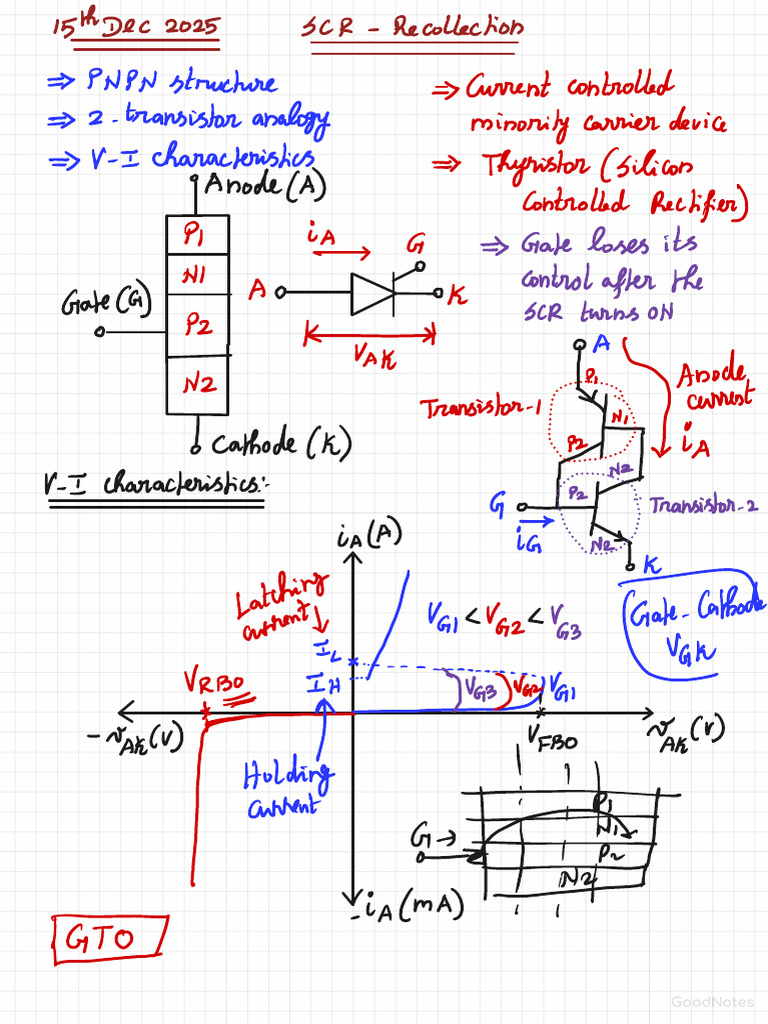 15th Dec 2025
SCR - Recollection
⇒ PNPN structure
⇒ 2-transistor analogy
⇒ V-I characteristics
⇒ Current controlled
minority carrier device
⇒ Thyristor (Silicon
Controlled Rectifier)
⇒ Gate loses its
control after the
SCR turns ON
Anode (A)
P1
N1
P2
N2
Gate (G)
Cathode (K)
iA
A
G
K
VAK
A
P1
N1
P2
Transistor-1
Anode
current
iA
N2
P2
N2
Transistor-2
G
iG
K
Gate-Cathode
VGK
V-I characteristics:-
iA (A)
Latching
current
IL
IH
VG1 < VG2 < VG3
VRBO
VG3
VG2
VG1
-vAK (V)
VFBO
vAK (V)
Holding
current
G →
P1
N1
P2
N2
-iA (mA)
GTO
GoodNotes